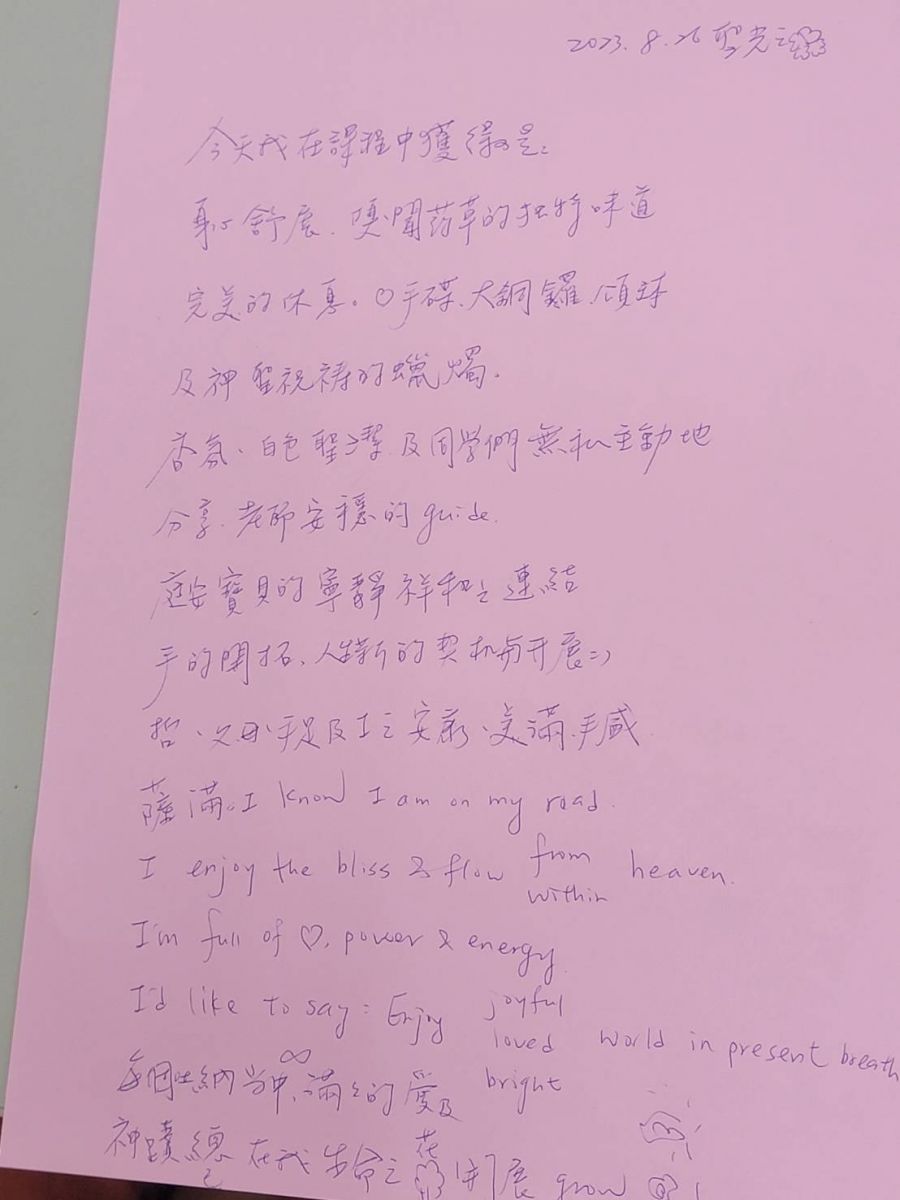 2023.8.26 聖光之
今天我在課程中獲得的是:
身心舒展、嗅聞药草的独特味道
完美的休息。♡手碟、大銅鑼、頌缽
及神聖祝祷的蠟燭.
香氛、白色聖潔及同學們無私主動地
分享.老師安穩的guide.
庭安寶貝的寧靜祥和之連結
手的開拓、人生新的契机与开展:)
哲、父母手足及工之安穩、美滿、手感
薩滿。I know I am on my road.
I enjoy the bliss & flow from within heaven.
I'm full of ♡, power & energy
I'd like to say: Enjoy joyful loved bright world in present breath
每個吐納當中∞滿滿的愛及
神蹟總 在我生命之花 開展 grow